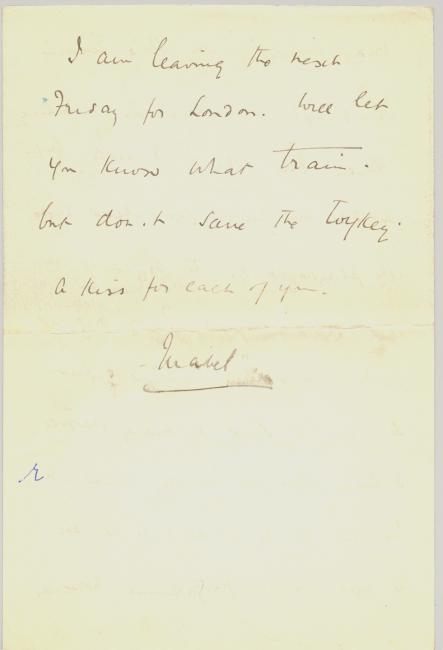 I am leaving the next
Friday for London. Will let
you know what train.
but don't save the
A kiss for each of you.
Mabel
r